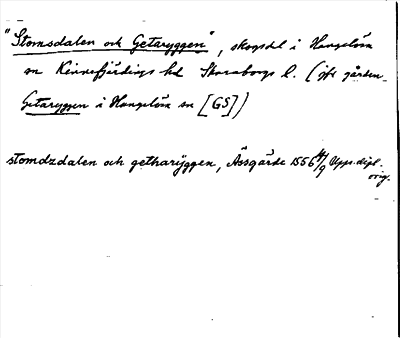 "Stomsdalen och Getaryggen", skogsdel i Hangelösa
sn Kinnefjärdings hd Skaraborgs l. (jfr gården
Getaryggen i Hangelösa sn [GS])
stomdzdalen och getharÿggen, Åssgärde 1556 4/9 Upps. dipl.
orig.